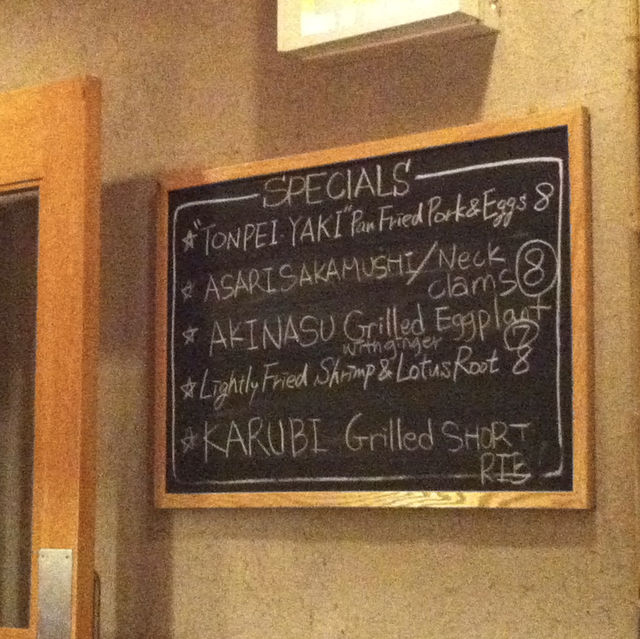 SPECIALS
☆ "TONPEI YAKI" Pan Fried Pork & Eggs 8
☆ ASARI SAKAMUSHI / Neck
clams 8
☆ AKINASU Grilled Eggplant
with ginger 7
☆ Lightly Fried Shrimp & Lotus Root 8
☆ KARUBI Grilled SHORT
RIB